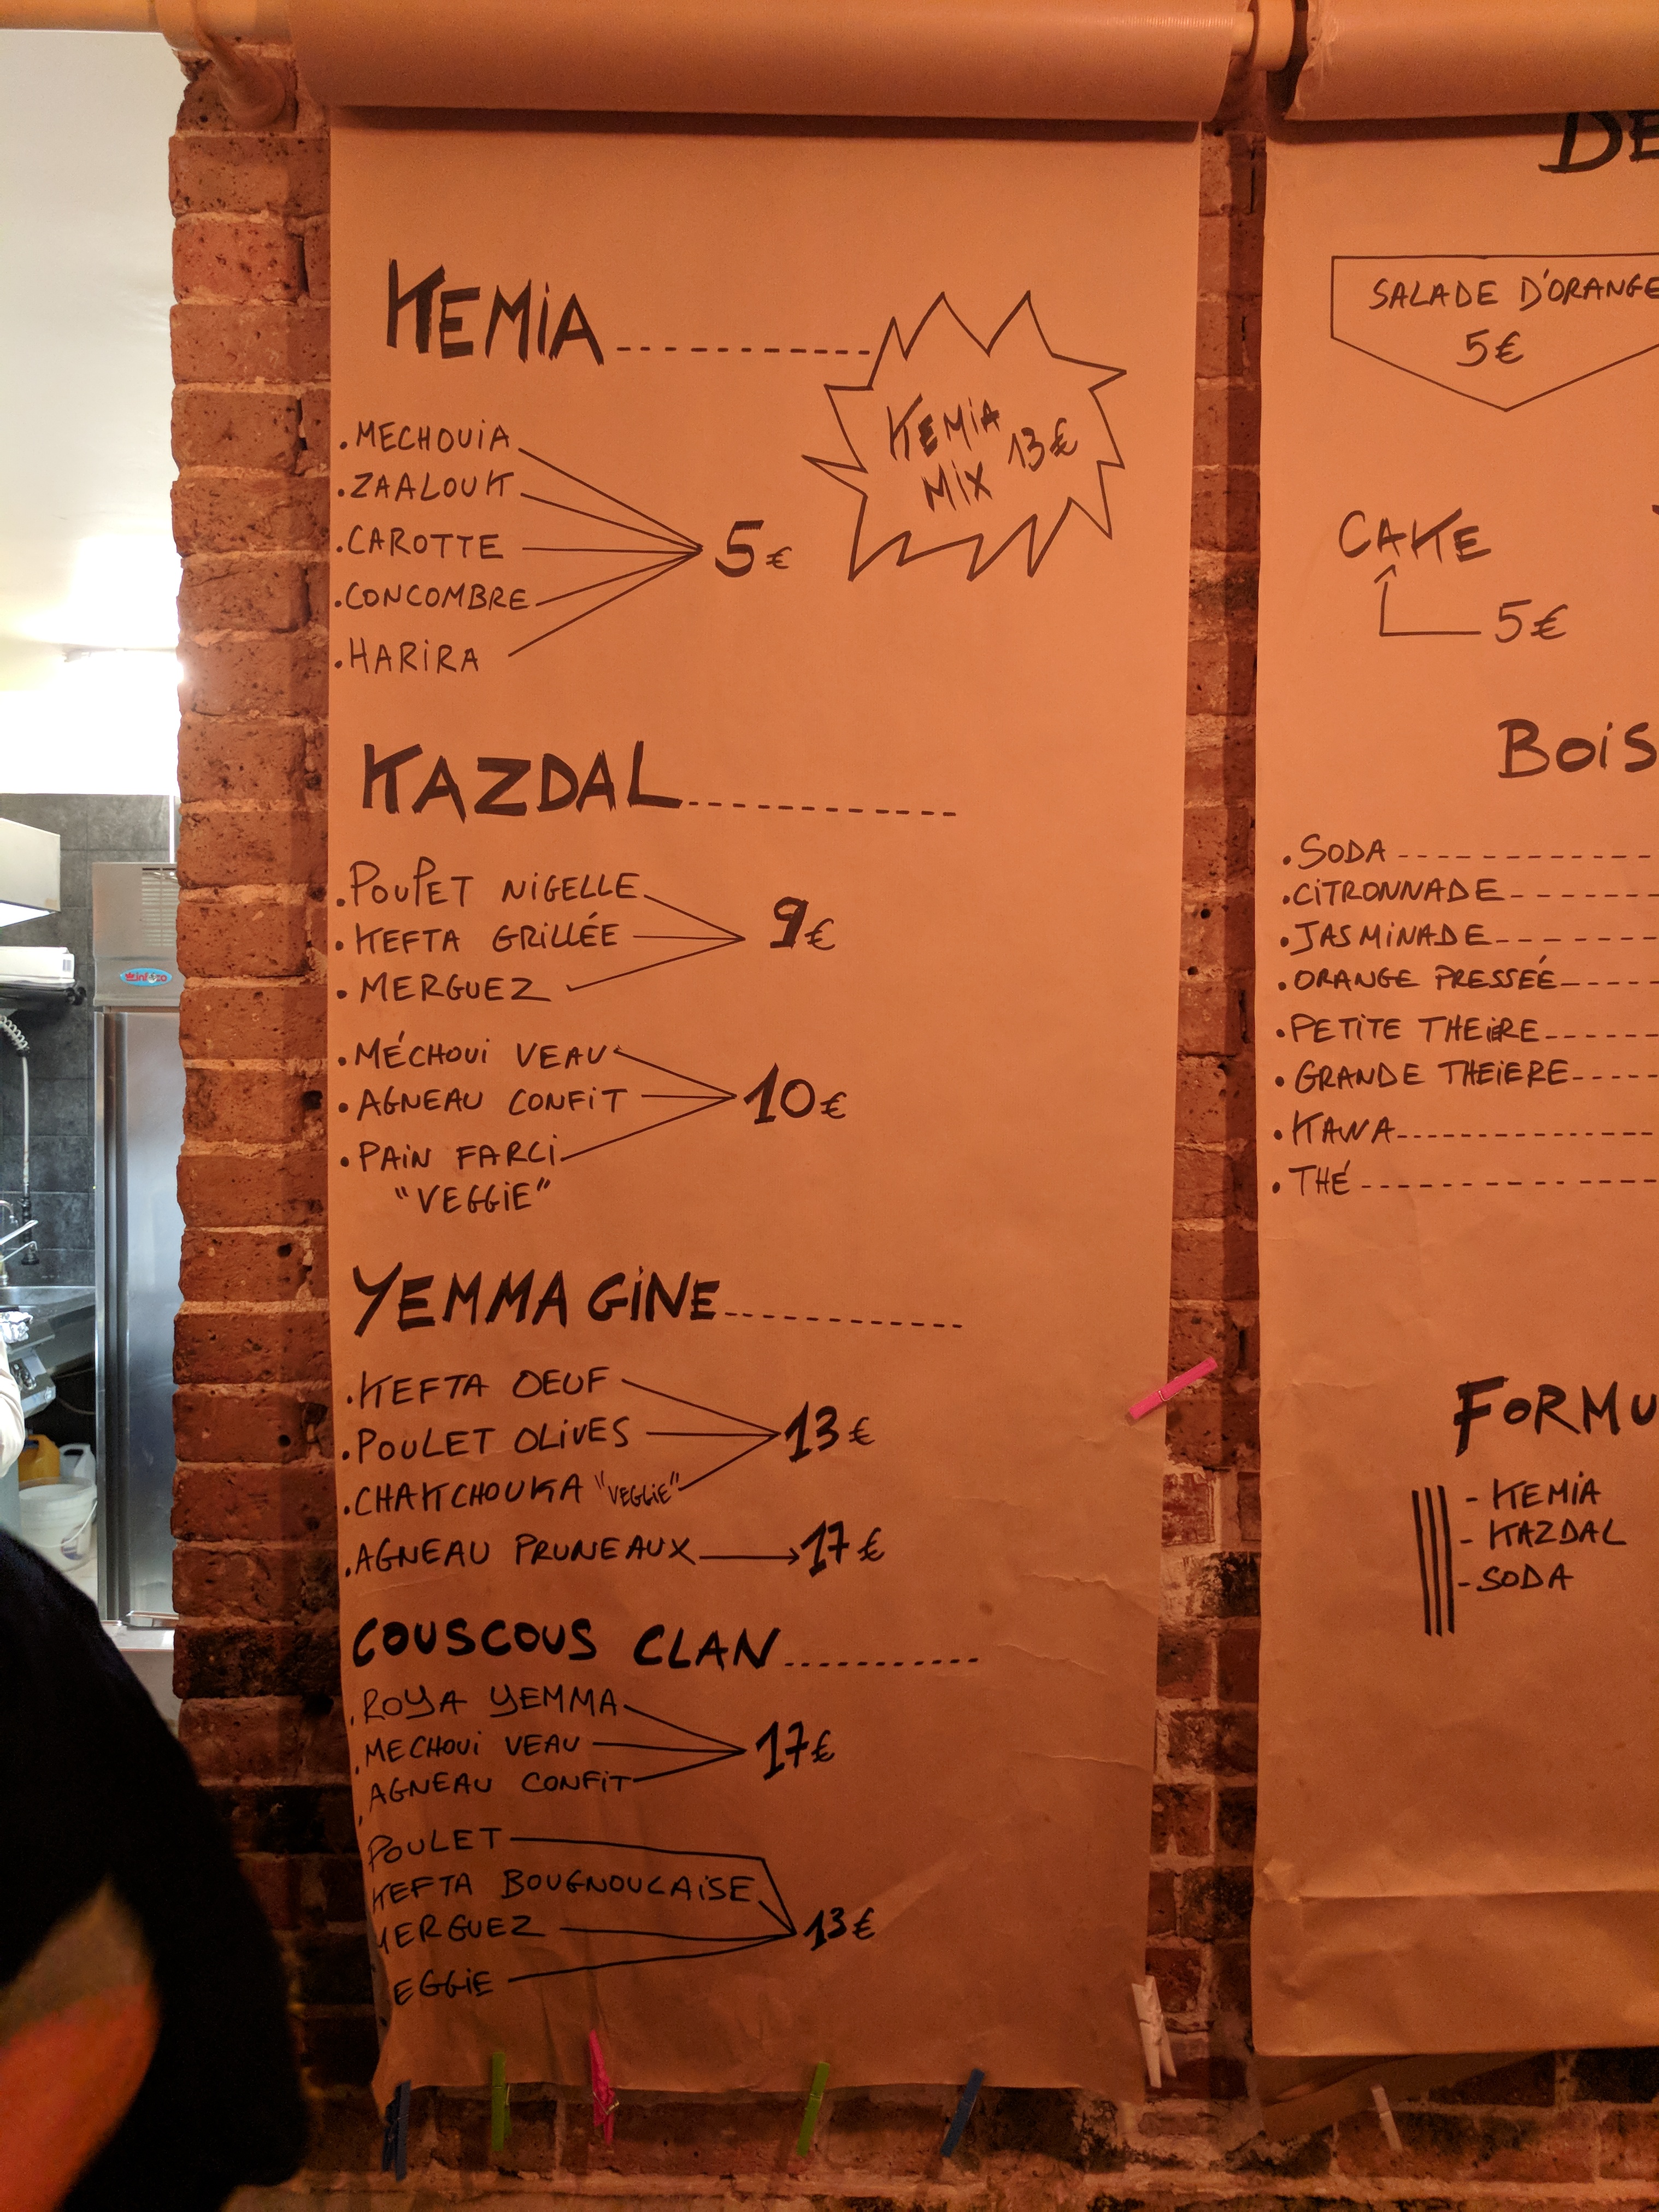 KEMIA
KEMIA
MIX 13€
.MECHOUIA
.ZAALOUK
.CAROTTE
.CONCOMBRE
.HARIRA
5€
KAZDAL
.POULET NIGELLE
.KEFTA GRILLÉE
.MERGUEZ
9€
.MÉCHOUI VEAU
.AGNEAU CONFIT
.PAIN FARCI
"VEGGIE"
10€
YEMMA GINE
.KEFTA OEUF
.POULET OLIVES
.CHAKCHOUKA "VEGGIE"
13€
.AGNEAU PRUNEAUX 17€
COUSCOUS CLAN
.ROYA YEMMA
.MECHOUI VEAU
.AGNEAU CONFIT
17€
POULET
KEFTA BOUGNOULAISE
MERGUEZ
EGGIE
13€
DE
SALADE D'ORANGE
5€
CAKE
5€
BOIS
.SODA
.CITRONNADE
.JASMINADE
.ORANGE PRESSEÉ
.PETITE THEIRE
.GRANDE THEIERE
.KAWA
.THÉ
FORMU
- KEMIA
- KAZDAL
- SODA